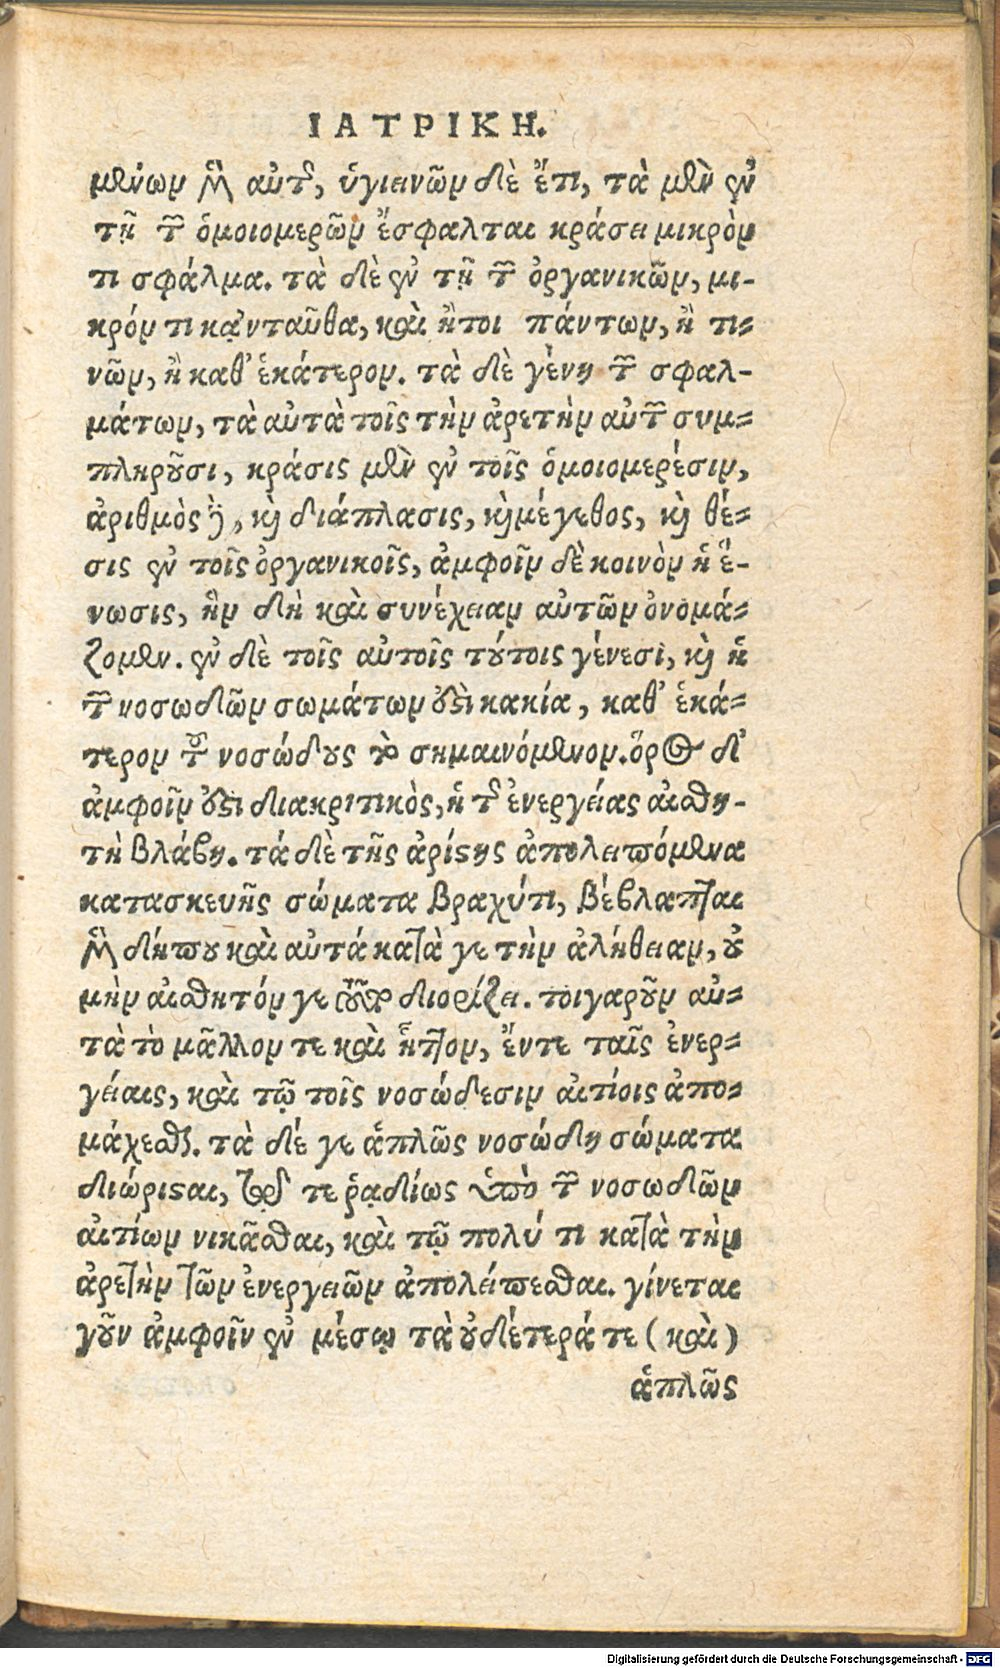 ΙΑΤΡΙΚΗ.
μένων μὲν αὐτῆς, ὑγιεινῶν δὲ ἔτι, τὰ μὲν ἐν
τῇ τῶν ὁμοιομερῶν ἔσφαλται κράσει μικρὸν
τι σφάλμα. τὰ δὲ ἐν τῇ τῶν ὀργανικῶν, μι-
κρόν τι κᾀνταῦθα, καὶ ἤτοι πάντων, ἢ τι-
νῶν, ἢ καθ’ ἑκάτερον. τὰ δὲ γένη τῶν σφαλ-
μάτων, τὰ αὐτὰ τοῖς τὴν ἀρετὴν αὐτῶν συμ-
πληροῦσι, κράσις μὲν ἐν τοῖς ὁμοιομερέσιν,
ἀριθμὸς δὲ, καὶ διάπλασις, καὶ μέγεθος, καὶ θέ-
σις ἐν τοῖς ὀργανικοῖς, ἀμφοῖν δὲ κοινὸν ἡ ἕ-
νωσις, ἣν δὴ καὶ συνέχειαν αὐτῶν ὀνομά-
ζομεν. ἐν δὲ τοῖς αὐτοῖς τούτοις γένεσι, καὶ ἡ
τῶν νοσωδῶν σωμάτων ἐστὶ κακία, καθ’ ἑκά-
τερον τοῦ νοσώδους τὸ σημαινόμενον. ὅρος δ’
ἀμφοῖν ἐστι διακριτικὸς, ἡ τῆς ἐνεργείας αἰσθη-
τὴ βλάβη. τά δὲ τῆς ἀρίστης ἀπολειπόμενα
κατασκευῆς σώματα βραχύτι, βέβλαπται
μὲν δήπου καὶ αὐτά κατὰ γε τὴν ἀλήθειαν, οὐ
μὴν αἰσθητόν γε οὔπω διορίζει. τοιγαροῦν αὐ-
τὰ τὸ μᾶλλον τε καὶ ἧττον, ἔντε ταῖς ἐνερ-
γείαις, καὶ τῷ τοῖς νοσώδεσιν αἰτίοις ἀπο-
μάχεσθαι. τὰ δέ γε ἁπλῶς νοσώδη σώματα
διώρισται, τῷ τε ῥᾳδίως ὑπὸ τῶν νοσωδῶν
αἰτίων νικᾶσθαι, καὶ τῷ πολύ τι κατὰ τὴν
ἀρετὴν τῶν ἐνεργειῶν ἀπολείπεσθαι. γίνεται
γοῦν ἀμφοῖν ἐν μέσῳ τὰ οὐδέτερά τε (καὶ)
ἁπλῶς
Digitalisierung gefördert durch die Deutsche Forschungsgemeinschaft - DFG